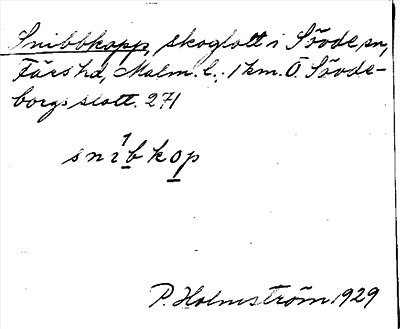 Snibbkopp, skoglott i Sövde sn,
Färs hd, Malm. l.; 1 km. Ö. Sövde-
borgs slott. 271
sni1bkop
P. Holmström 1929